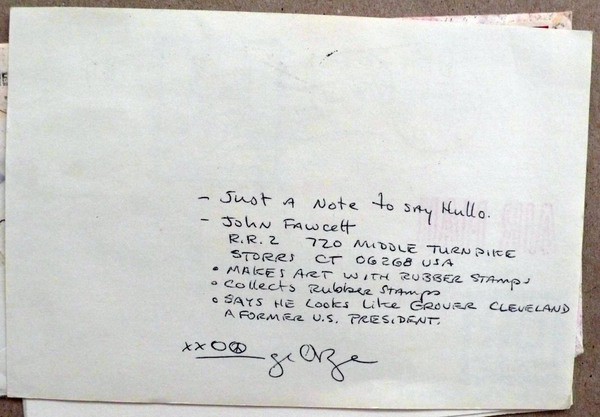 - Just A Note to SAY Hullo.
- John Fawcett
R.R. 2 720 MIDDLE TURNPIKE
STORRS CT 06268 USA
• MAKES ART WITH RUBBER STAMPS
• Collects Rubber Stamps
• SAYS HE LOOKS Like GROVER CLEVELAND
A FORMER U.S. PRESIDENT.
xxOO george